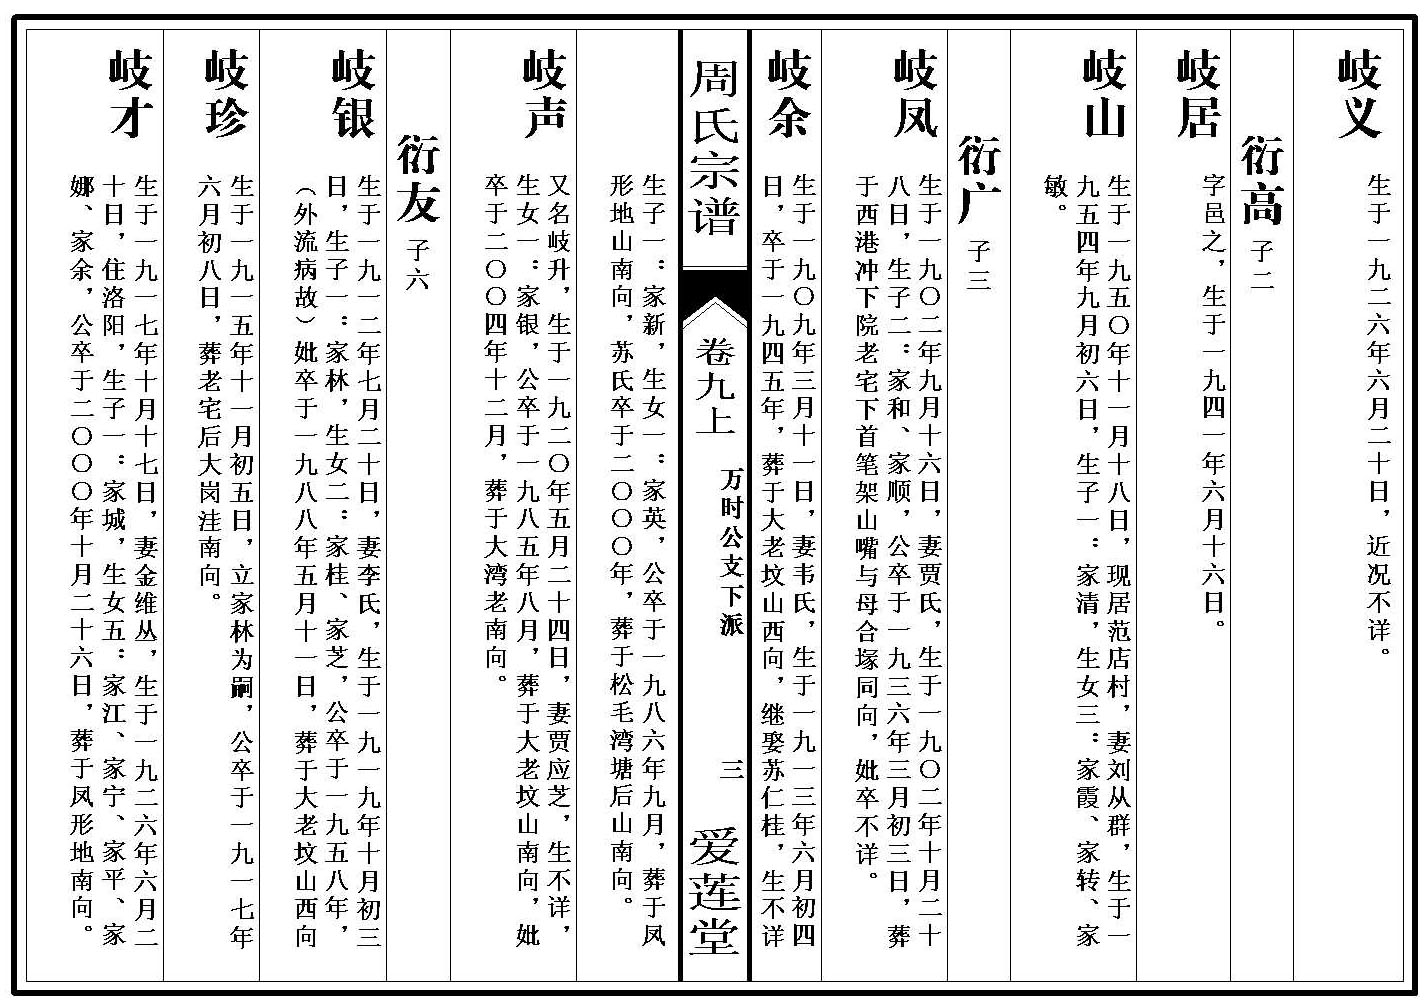 岐义
生于一九二六年六月二十日，近况不详。
衍高 子二
岐居
字邑之，生于一九四一年六月十六日。
岐山
生于一九五〇年十一月十八日，现居范店村，妻刘从群，生于一
九五四年九月初六日，生子一：家清，生女三：家霞、家转、家
敏。
衍广 子三
岐凤
生于一九〇二年九月十六日，妻贾氏，生于一九〇二年十月二十
八日，生子二：家和、家顺，公卒于一九三六年三月初三日，葬
于西港冲下院老宅下首笔架山嘴与母合塚同向，妣卒不详。
岐余
生于一九〇九年三月十一日，妻韦氏，生于一九一三年六月初四
日，卒于一九四五年，葬于大老坟山西向，继娶苏仁桂，生不详
周氏宗谱
卷九上
万时公支下派
三
爱莲堂
生子一：家新，生女一：家英，公卒于一九八六年九月，葬于凤
形地山南向，苏氏卒于二〇〇〇年，葬于松毛湾塘后山南向。
岐声
又名岐升，生于一九二〇年五月二十四日，妻贾应芝，生不详，
生女一：家银，公卒于一九八五年八月，葬于大老坟山南向，妣
卒于二〇〇四年十二月，葬于大湾老南向。
衍友 子六
岐银
生于一九一二年七月二十日，妻李氏，生于一九一九年十月初三
日，生子一：家林，生女二：家桂、家芝，公卒于一九五八年，
（外流病故）妣卒于一九八八年五月十一日，葬于大老坟山西向
岐珍
生于一九一五年十一月初五日，立家林为嗣，公卒于一九一七年
六月初八日，葬老宅后大岗洼南向。
岐才
生于一九一七年十月十七日，妻金维丛，生于一九二六年六月二
十日，住洛阳，生子一：家城，生女五：家江、家宁、家平、家
娜、家余，公卒于二〇〇〇年十月二十六日，葬于凤形地南向。